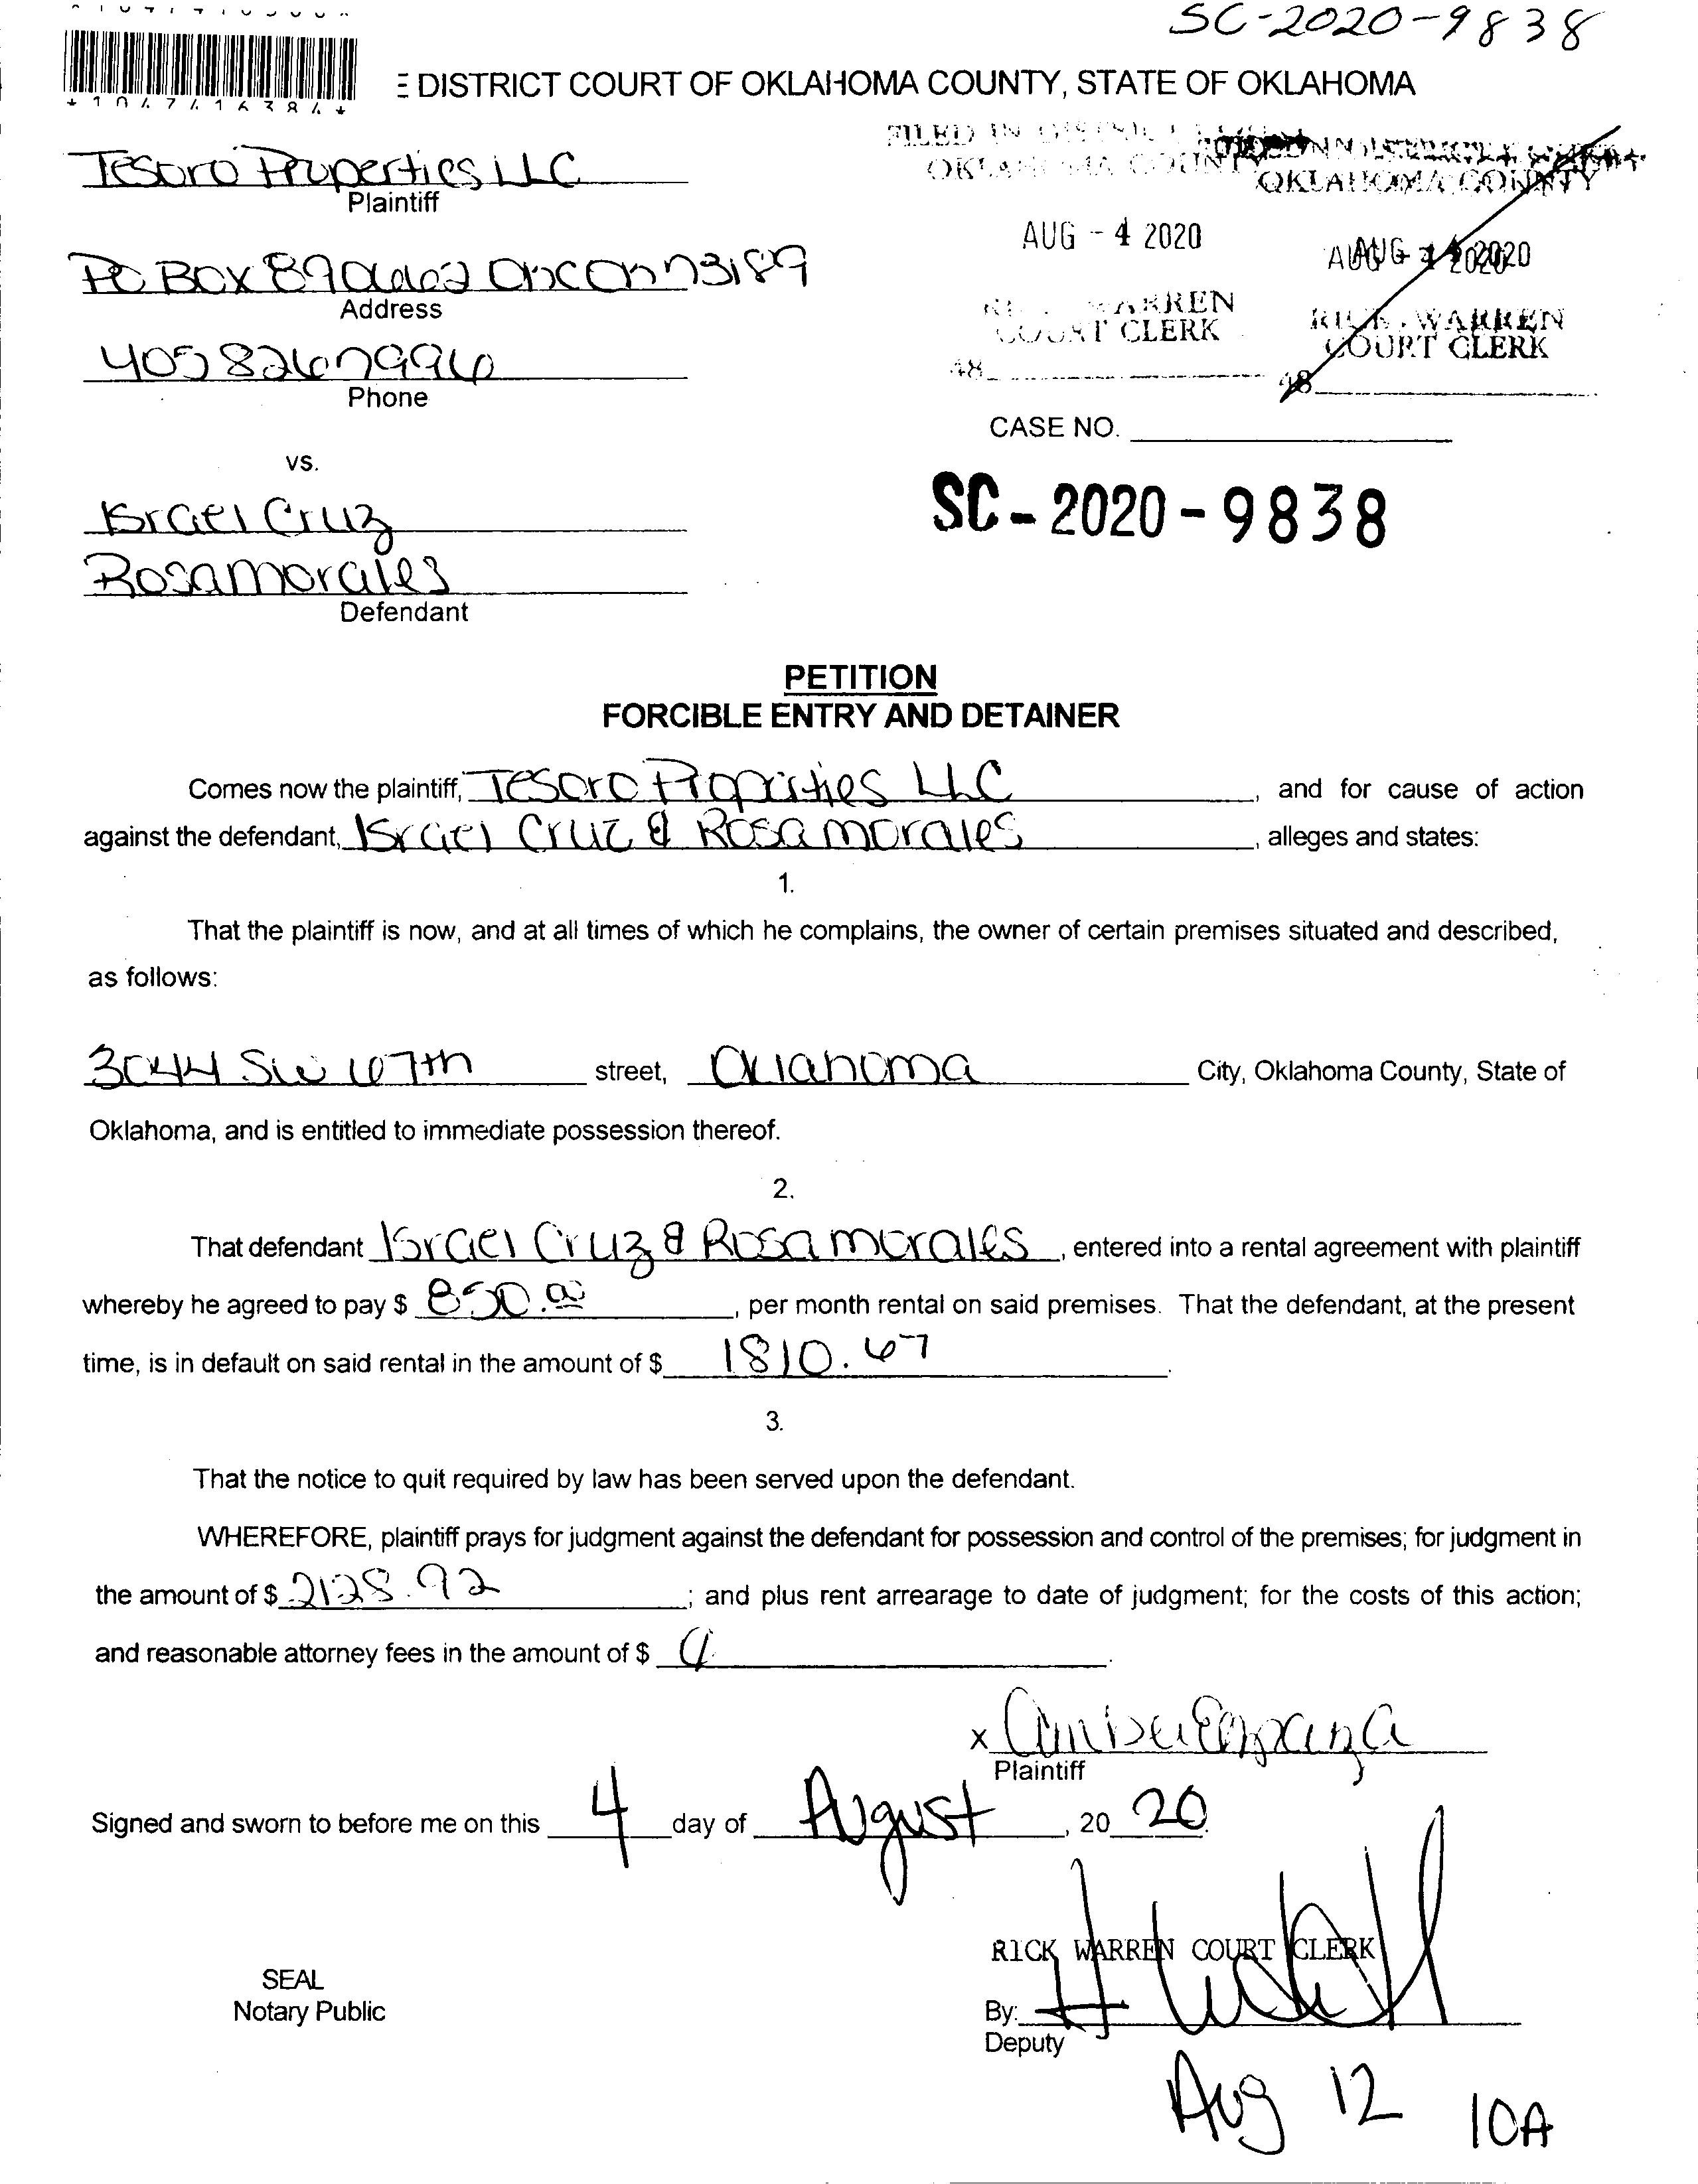 SC-2020-9838
*1047416384*
E DISTRICT COURT OF OKLAHOMA COUNTY, STATE OF OKLAHOMA
Tesoro Properties LLC
Plaintiff
FILED IN DISTRICT COURT
OKLAHOMA COUNTY
OKLAHOMA COUNTY
PO Box 890002 OKC OK 73189
Address
AUG - 4 2020
AUG 2020
WARREN
COURT CLERK
RICK WARREN
COURT CLERK
4058267996
Phone
48
48
CASE NO.
vs.
SC-2020-9838
Israel Cruz
Rosa morales
Defendant
PETITION
FORCIBLE ENTRY AND DETAINER
Comes now the plaintiff, Tesoro Properties LLC, and for cause of action
against the defendant, Israel Cruz & Rosa morales, alleges and states:
1.
That the plaintiff is now, and at all times of which he complains, the owner of certain premises situated and described,
as follows:
3044 SW 67th street, Oklahoma City, Oklahoma County, State of
Oklahoma, and is entitled to immediate possession thereof.
2.
That defendant Israel Cruz & Rosa morales, entered into a rental agreement with plaintiff
whereby he agreed to pay $ 850.00, per month rental on said premises. That the defendant, at the present
time, is in default on said rental in the amount of $ 1810.67.
3.
That the notice to quit required by law has been served upon the defendant.
WHEREFORE, plaintiff prays for judgment against the defendant for possession and control of the premises; for judgment in
the amount of $ 2128.92; and plus rent arrearage to date of judgment; for the costs of this action;
and reasonable attorney fees in the amount of $
x
Plaintiff
Signed and sworn to before me on this 4 day of August, 20 20.
RICK WARREN COURT CLERK
SEAL
Notary Public
By:
Deputy
Aug 12 10A